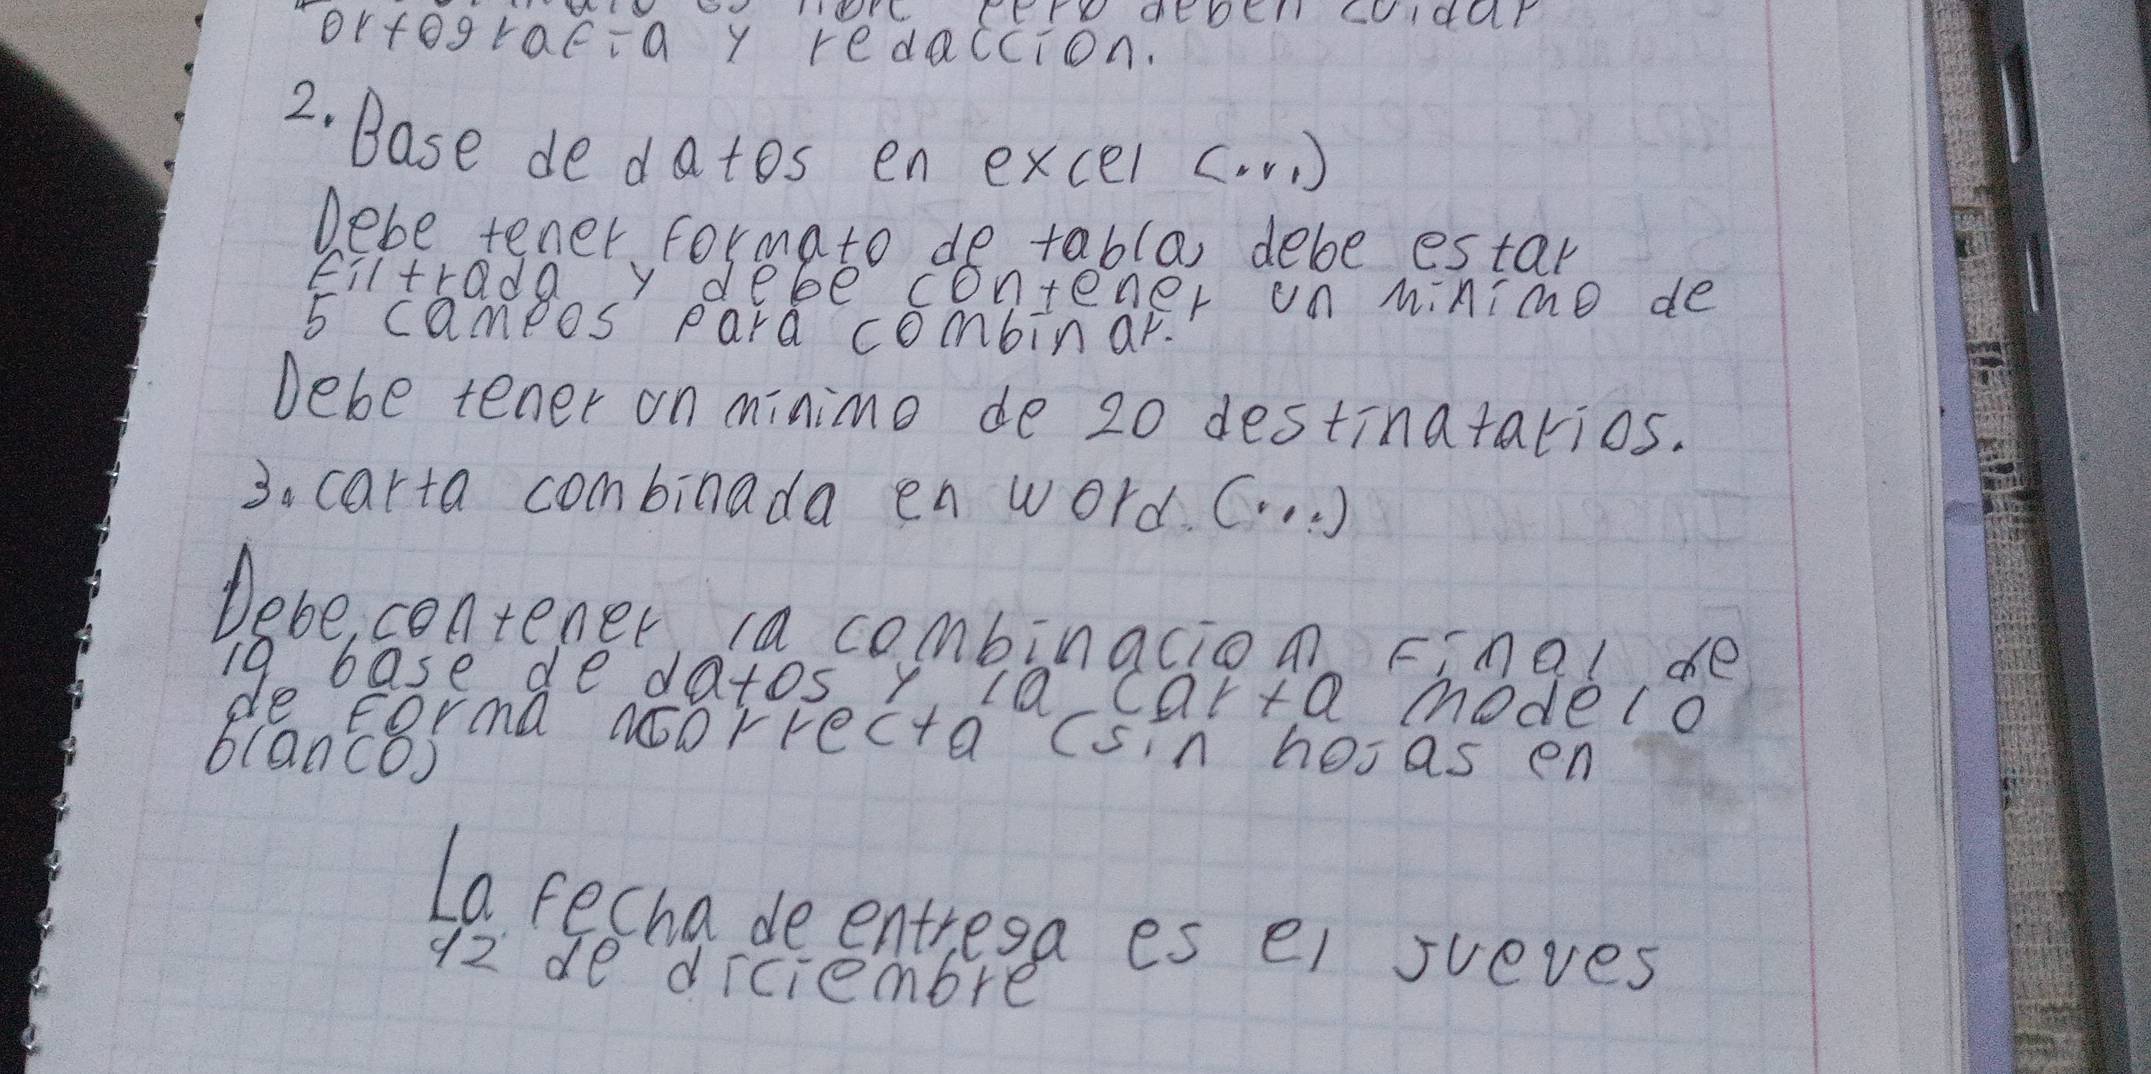 es libre pero deben cuidar
ortografia y redaccion.
2. Base de datos en excel (...)
Debe tener formato de tabla, debe estar
filtrada y debe contener un minimo de
5 campos para combinar.
Debe tener un minimo de 20 destinatarios.
3. carta combinada en word. (...)
Debe contener la combinacion final de
la base de datos y la carta modelo
de forma correcta (sin hojas en
blanco)
La fecha de entrega es el jueves
12 de diciembre